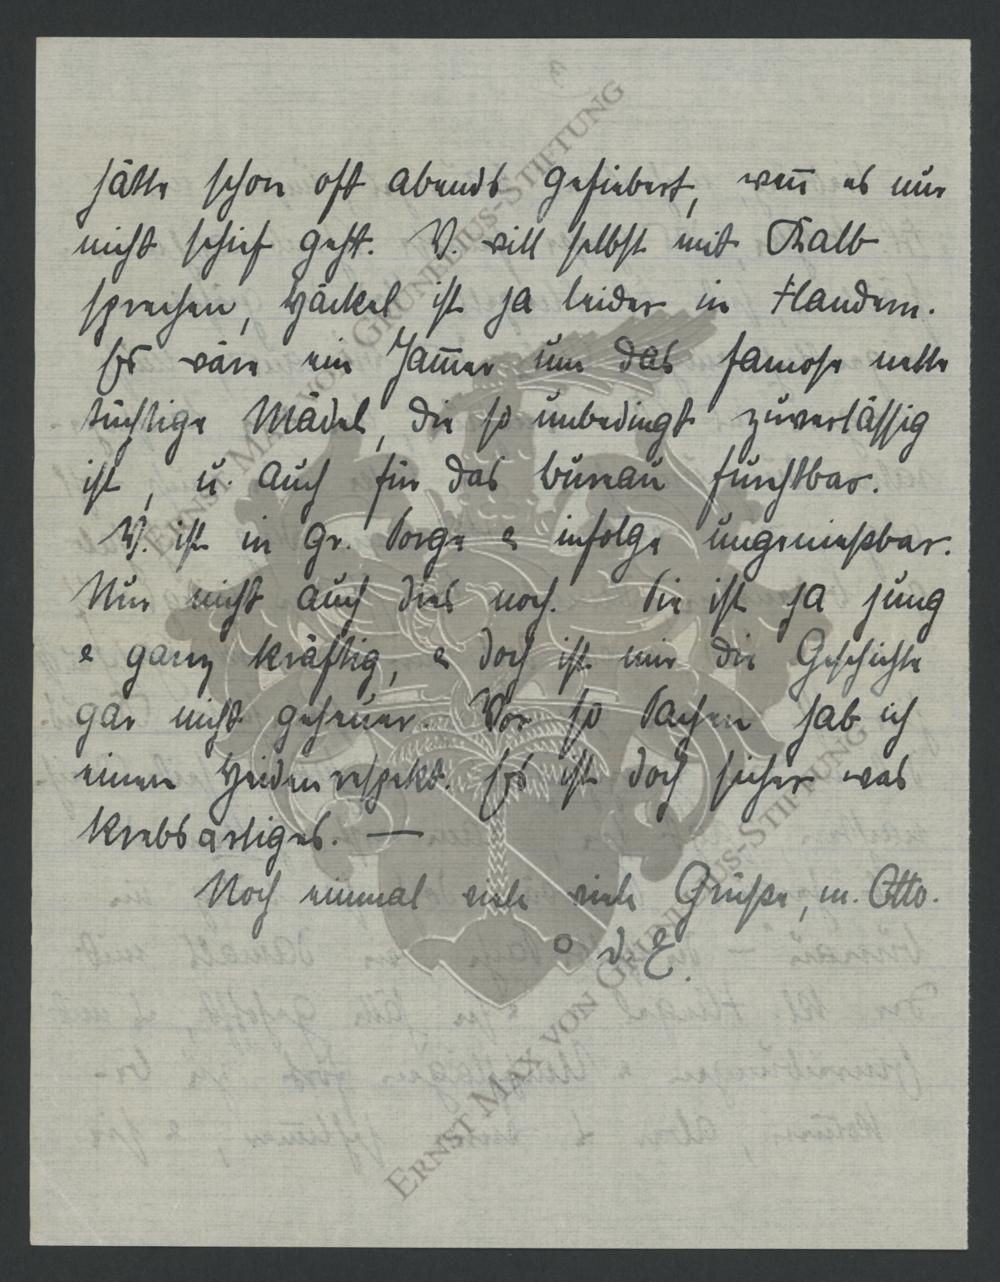 hätte schon oft abends gefiebert, weñ es nur
nicht schief geht. V. will selbst mit Kalb
sprechen, Häckel ist ja leider in Flandern.
Es wäre ein Jam̄er um das famose nette
tüchtige Mädel, die so unbedingt zuverlässig
ist, u. auch für das bureau furchtbar.
V. ist in gr. Sorge & infolge ungeniessbar.
Nur nicht auch dies noch. Sie ist ja jung
& ganz kräftig, & doch ist mir die Geschichte
gar nicht geheuer. Vor so Sachen hab ich
einen Heidenrespekt. Es ist doch sicher was
krebsartiges. —
Noch einmal viele viele Grüsse, m. Otto.
ERNST MAX VON GRUNELIUS-STIFTUNG
ERNST MAX VON GRUNELIUS-STIFTUNG